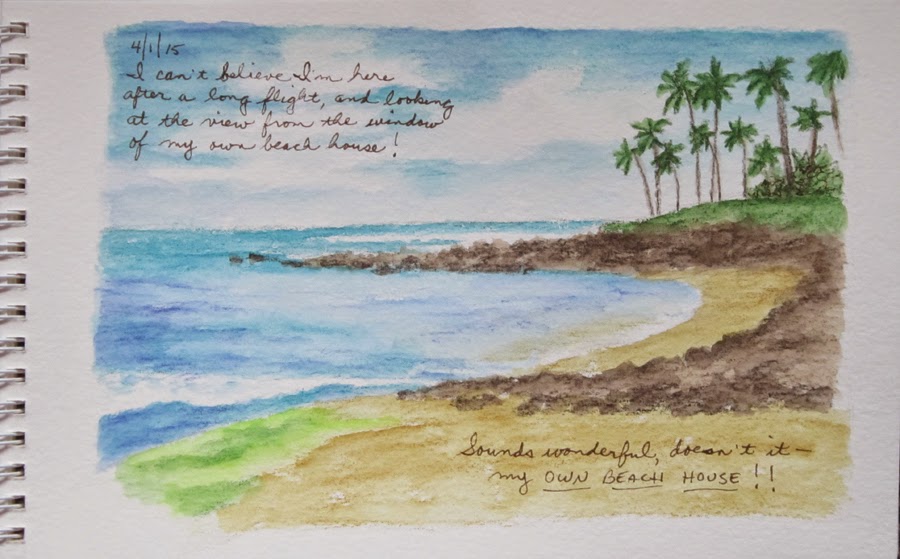 4/1/15
I can't believe I'm here
after a long flight, and looking
at the view from the window
of my own beach house!
Sounds wonderful, doesn't it –
my OWN BEACH HOUSE!!